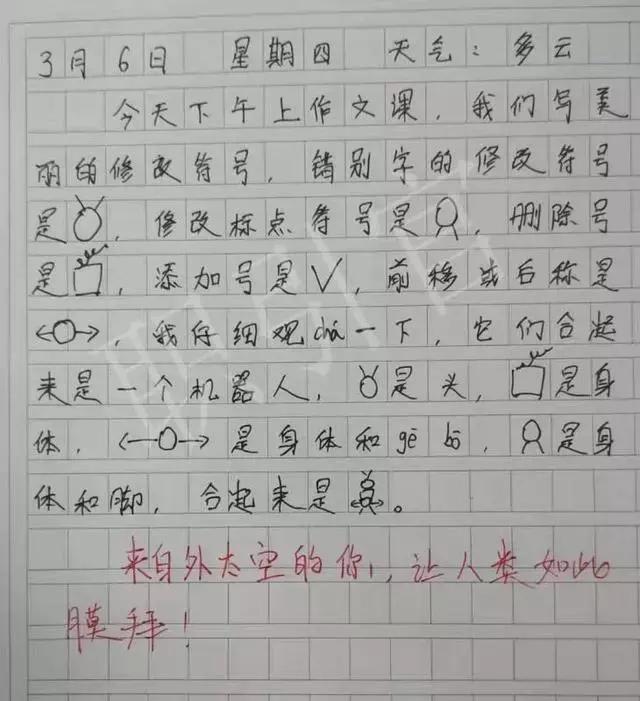 3月6日 星期四 天气：多云
今天下午上作文课，我们写美
丽的修改符号，错别字的修改符号
是，修改标点符号是，删除号
是，添加号是√，前移或后称是
，我仔细观chá一下，它们合起
来是一个机器人，是头，是身
体，是身体和gē bō，是身
体和脚，合起来是。
来自外太空的你，让人类如此
膜拜！